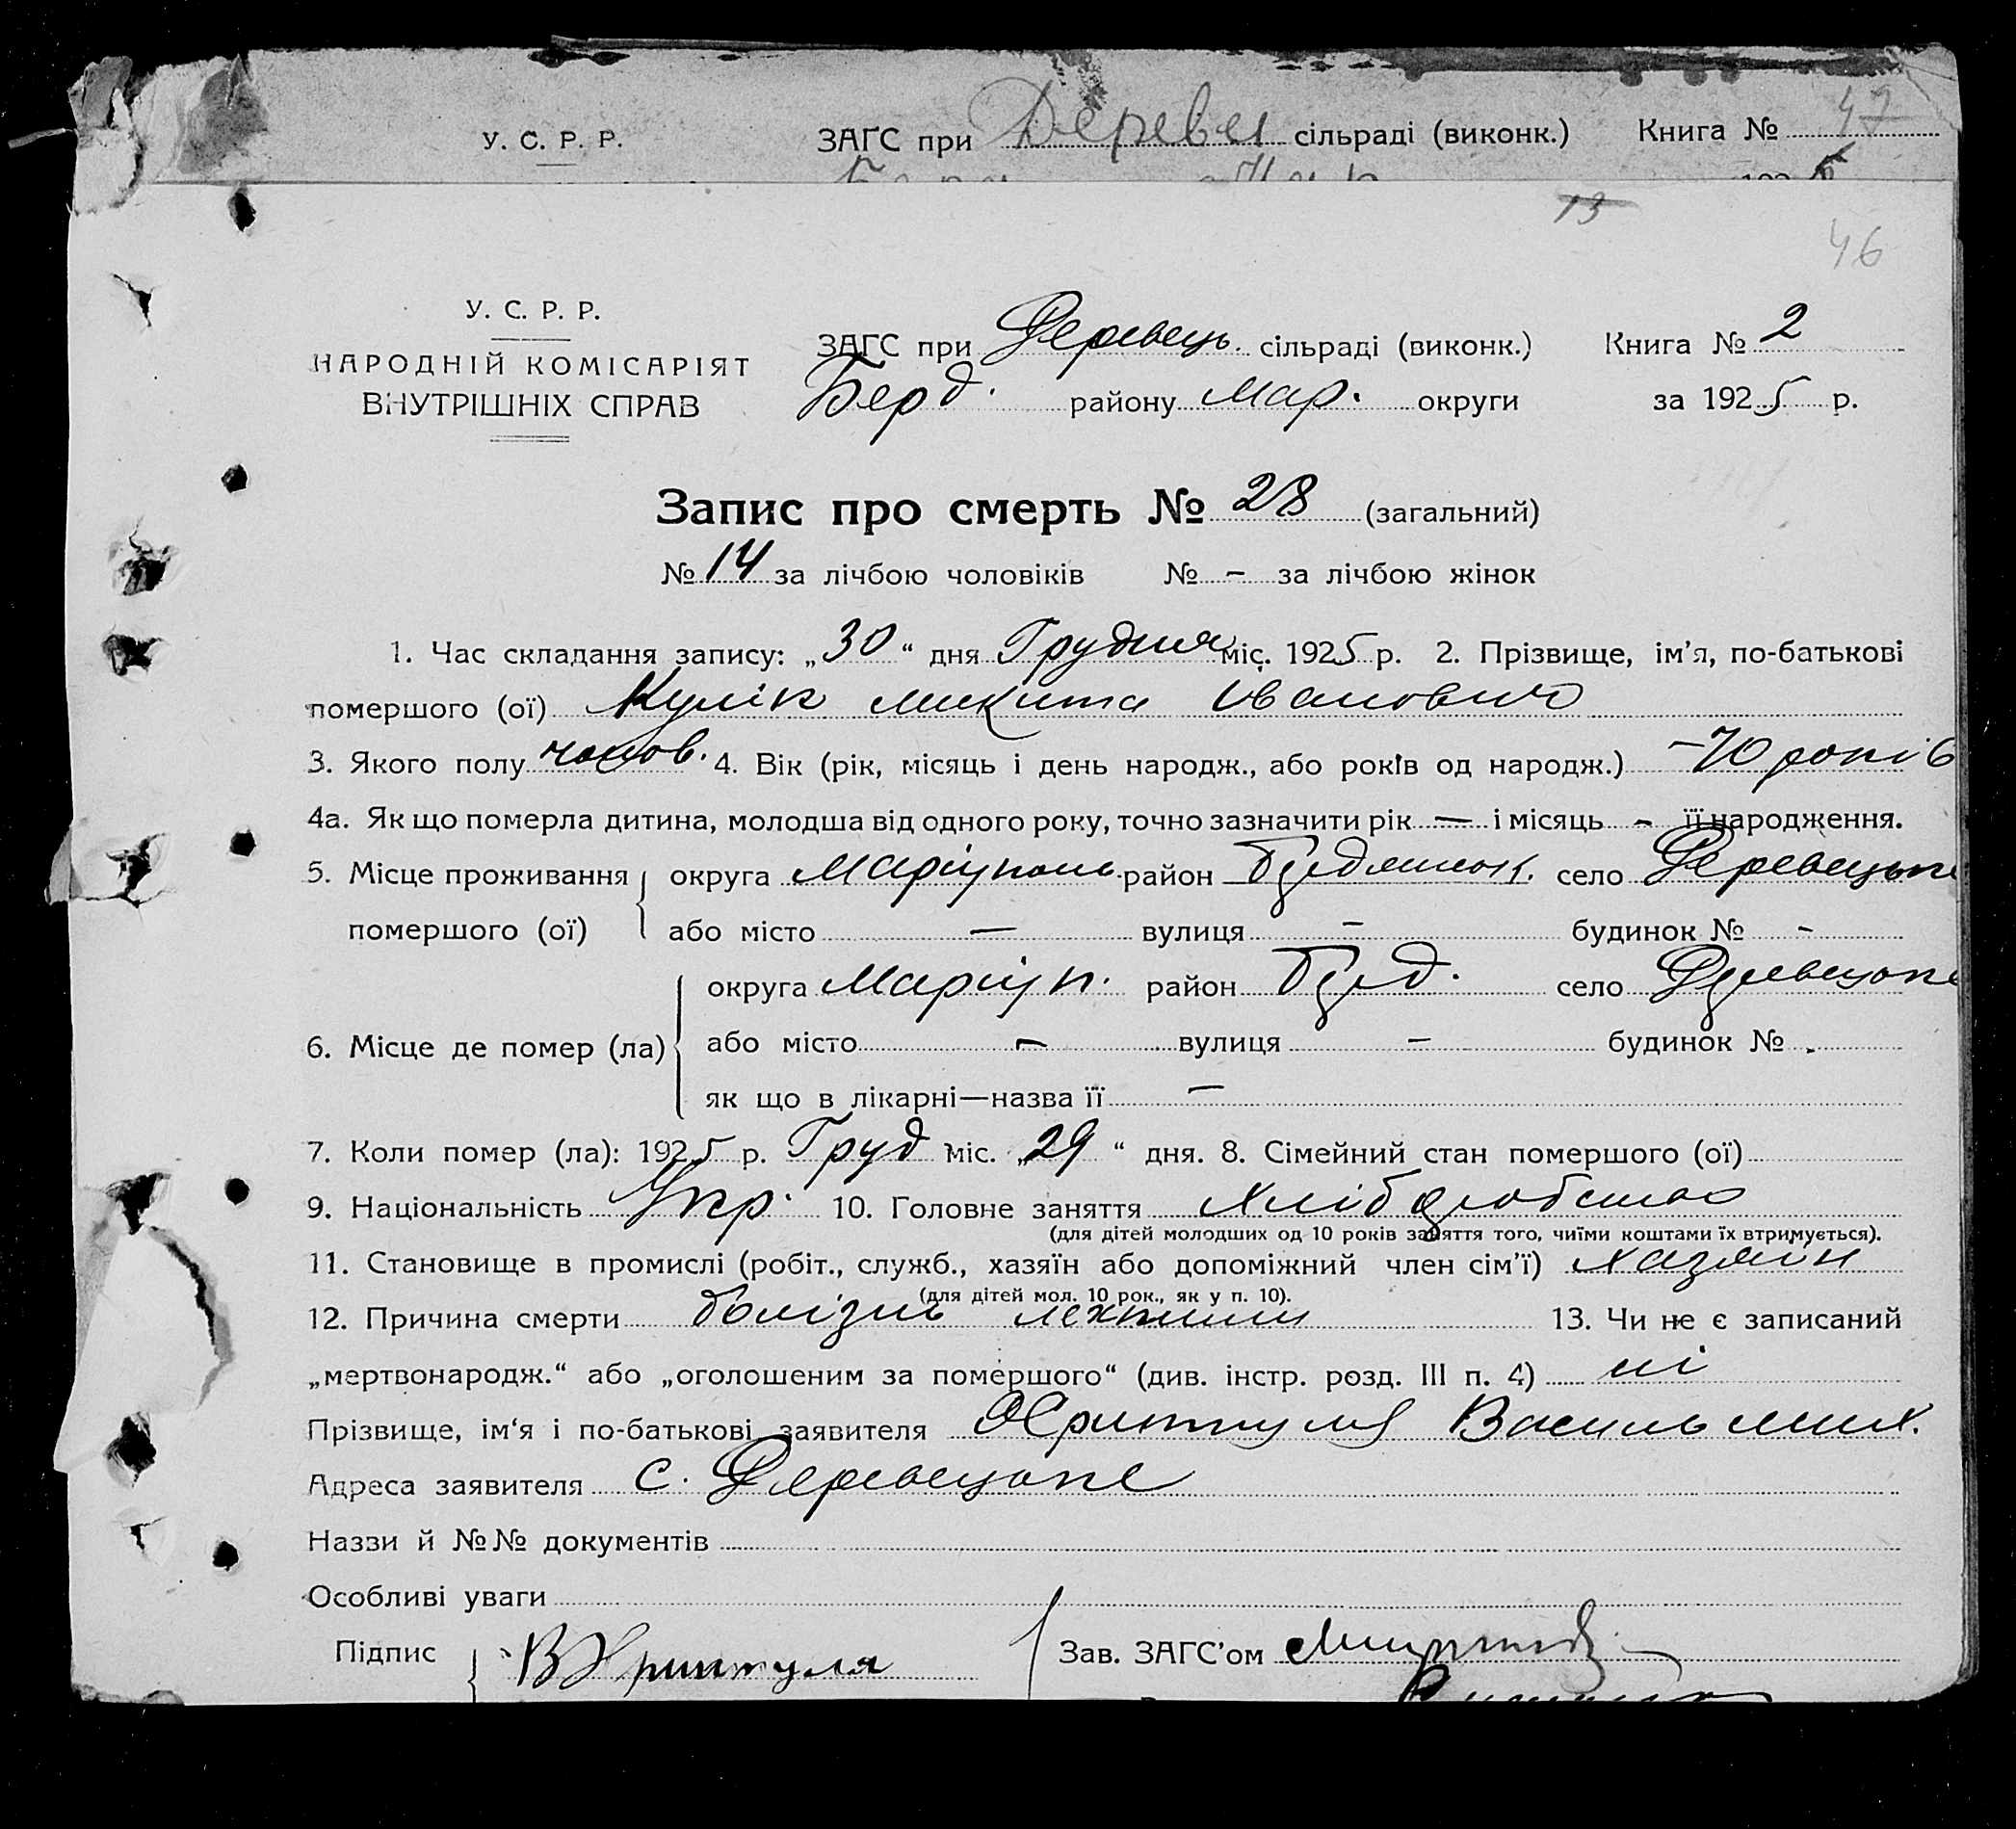 У. С. Р. Р. ЗАГС при Деревец сільраді (виконк.) Книга № 47
13
46
У. С. Р. Р.
НАРОДНІЙ КОМІСАРІЯТ
ВНУТРІШНІХ СПРАВ
ЗАГС при Деревець. сільраді (виконк.) Книга № 2
Берд. району Мар. округи за 1925 р.
Запис про смерть № 28 (загальний)
№ 14 за лічбою чоловіків № – за лічбою жінок
1. Час складання запису: „30“ дня Грудня міс. 1925 р. 2. Прізвище, ім’я, по-батькові
помершого (ої) Кулік Микита Іванович
3. Якого полу чолов. 4. Вік (рік, місяць і день народж., або років од народж.) – 70 років
4а. Як що померла дитина, молодша від одного року, точно зазначити рік — і місяць - її народження.
5. Місце проживання помершого (ої) округа Маріуполь. район село Деревецьке
або місто — вулиця – будинок № -
6. Місце де помер (ла) округа Маріуп. район село Деревецьке
або місто — вулиця – будинок № -
як що в лікарні—назва її —
7. Коли помер (ла): 1925 р. Груд міс. „29“ дня. 8. Сімейний стан помершого (ої)
9. Національність Укр. 10. Головне заняття Хлібороб
(для дітей молодших од 10 років заняття того, чиїми коштами їх втримується).
11. Становище в промислі (робіт., служб., хазяїн або допоміжний член сім’ї) хазяїн
(для дітей мол. 10 рок., як у п. 10).
12. Причина смерти болізнь 13. Чи не є записаний
„мертвонародж.“ або „оголошеним за помершого“ (див. інстр. розд. III п. 4) ні
Прізвище, ім‘я і по-батькові заявителя Хриптуля Василь Мих.
Адреса заявителя с. Деревецьке
Назви й №№ документів
Особливі уваги
Підпис В Хриптуля Зав. ЗАГС’ом